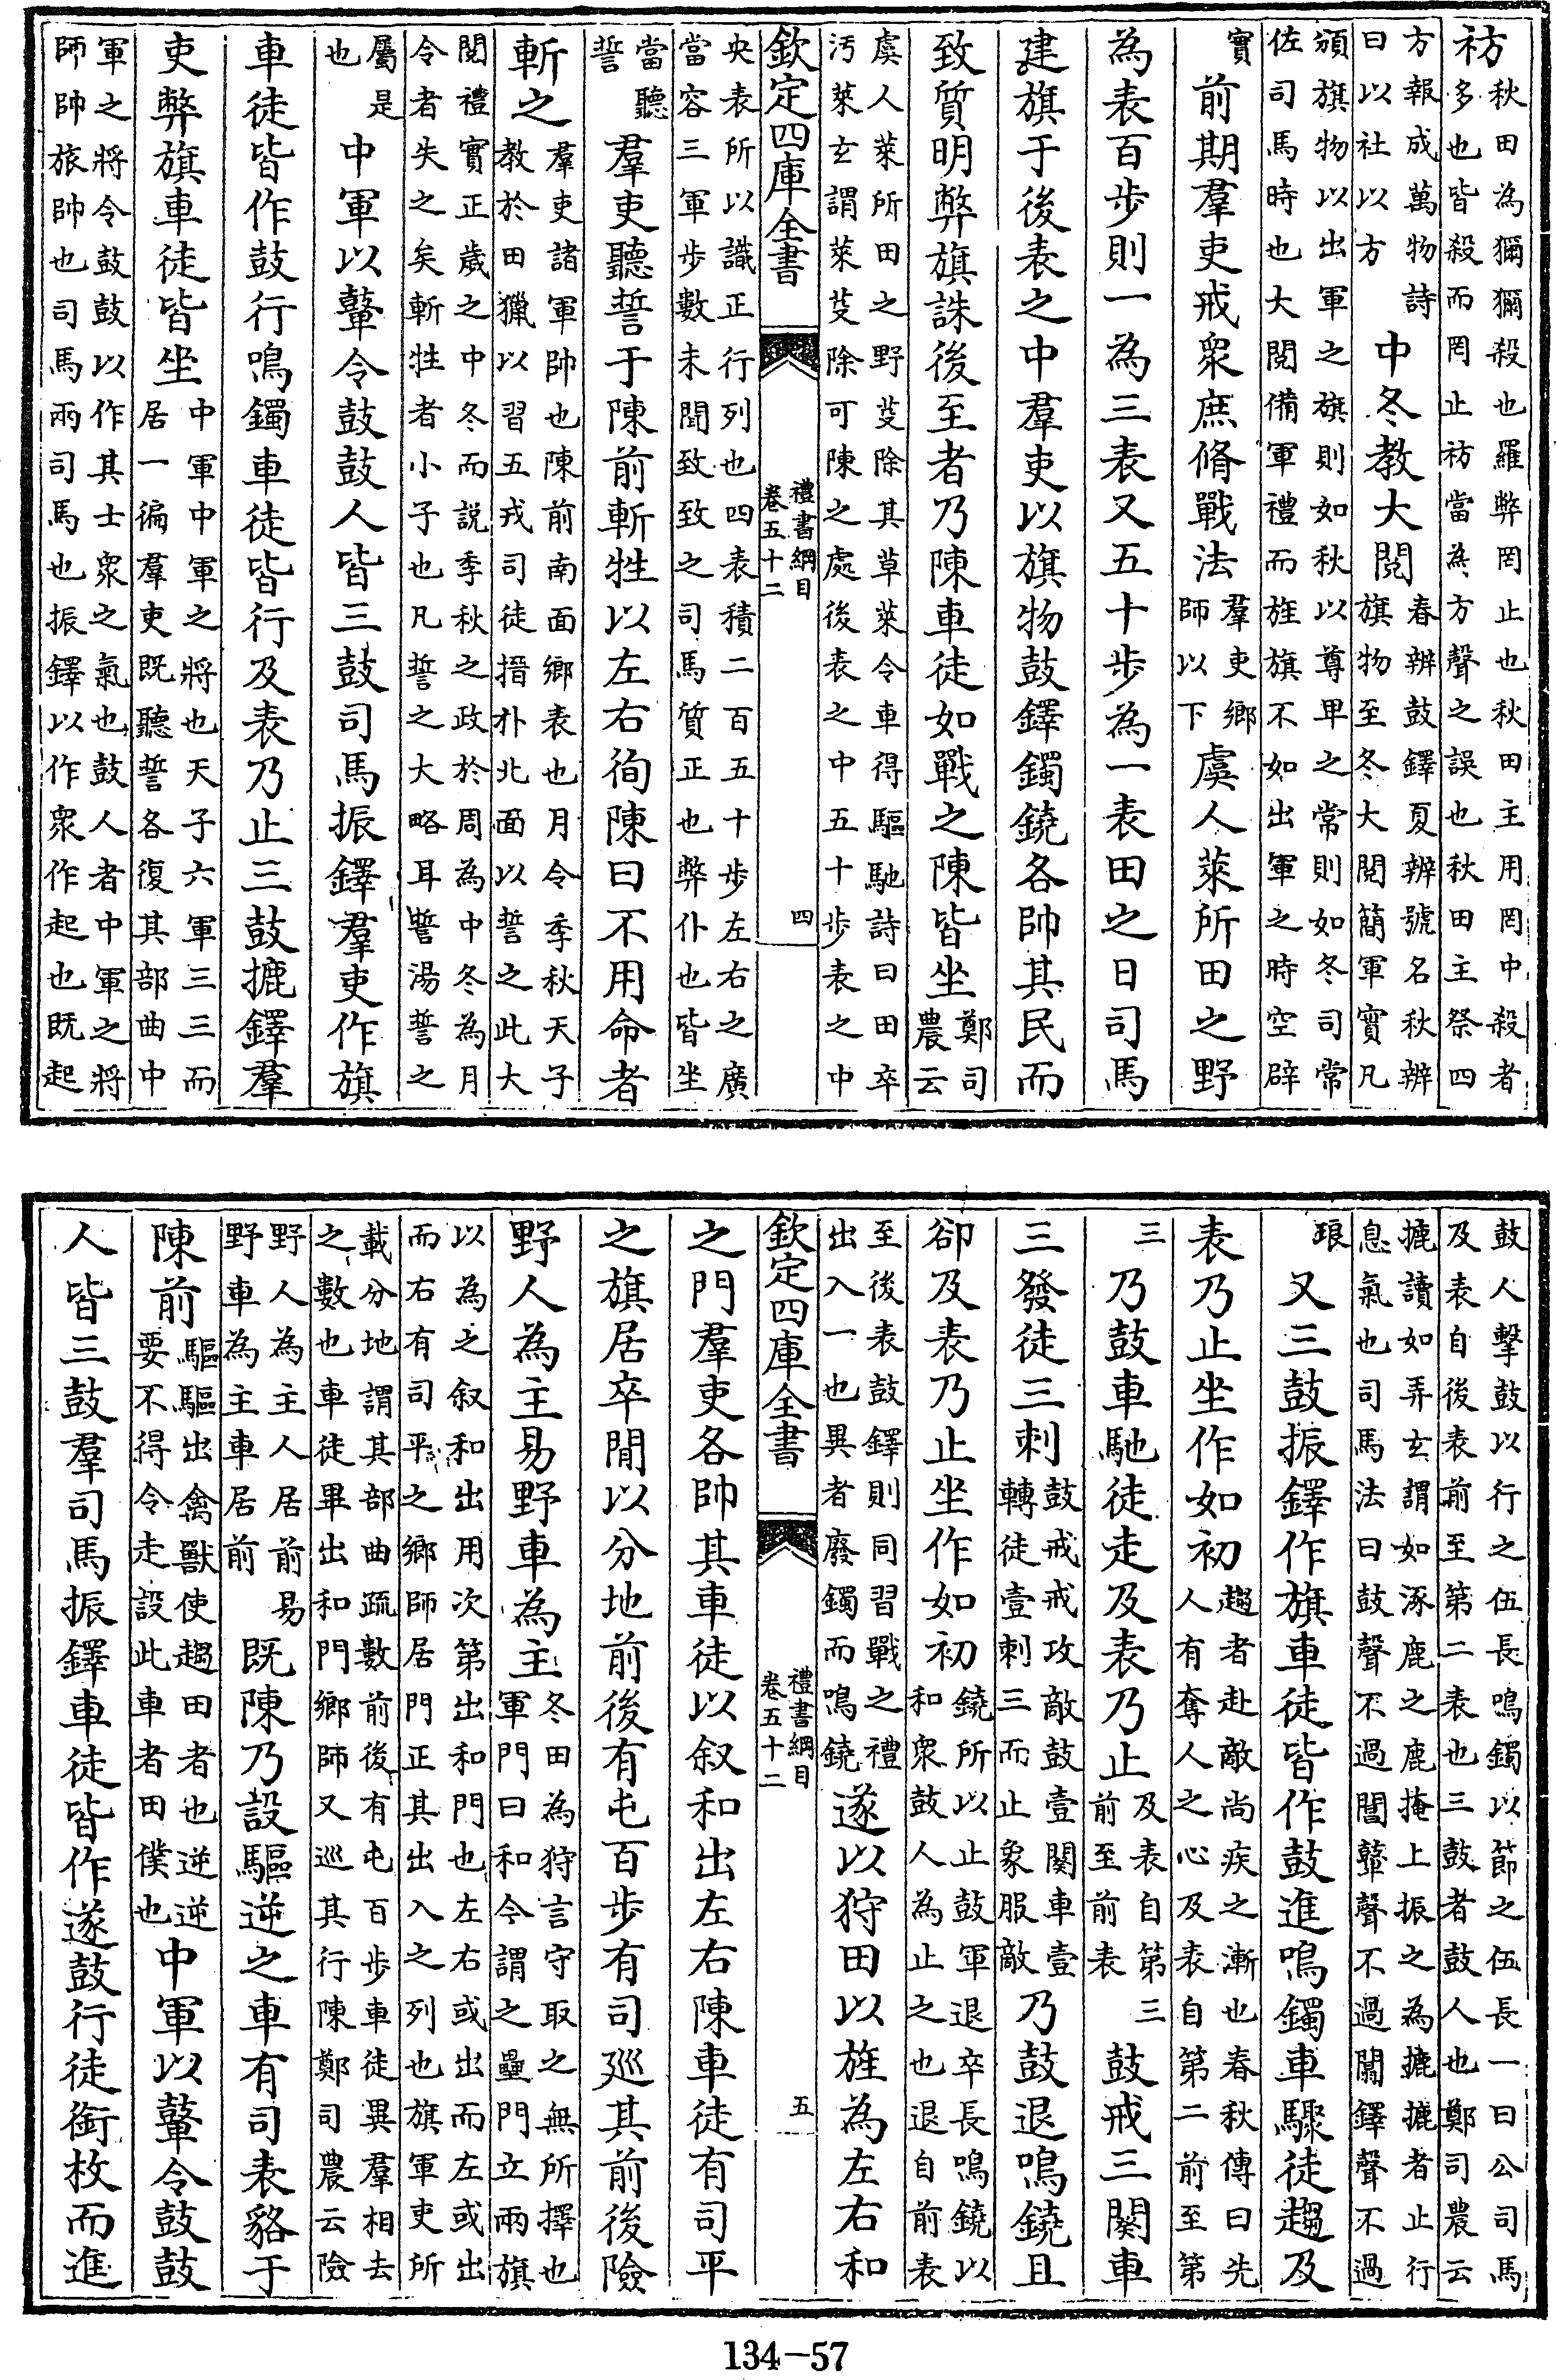 祊秋田為獮獮殺也羅弊罔止也秋田主用罔中殺者
多也皆殺而罔止祊當為方聲之誤也秋田主祭四
方報成萬物詩
曰以社以方中冬教大閱春辨鼓鐸夏辨號名秋辨
旗物至冬大閱簡軍實凡
頒旗物以出軍之旗則如秋以尊卑之常則如冬司常
佐司馬時也大閱備軍禮而旌旗不如出軍之時空辟
實前期羣吏戒衆庶脩戰法羣吏鄉
師以下虞人萊所田之野
為表百步則一為三表又五十步為一表田之日司馬
建旗于後表之中羣吏以旗物鼓鐸鐲鐃各帥其民而
致質明弊旗誅後至者乃陳車徒如戰之陳皆坐鄭司
農云
虞人萊所田之野芟除其草萊令車得驅馳詩曰田卒
汚萊玄謂萊芟除可陳之處後表之中五十步表之中
欽定四庫全書
禮書綱目
卷五十二
四
央表所以識正行列也四表積二百五十步左右之廣
當容三軍步數未聞致致之司馬質正也弊仆也皆坐
當聽
誓羣吏聽誓于陳前斬牲以左右徇陳曰不用命者
斬之羣吏諸軍帥也陳前南面鄉表也月令季秋天子
教於田獵以習五戎司徒搢朴北面以誓之此大
閱禮實正歲之中冬而說季秋之政於周為中冬為月
令者失之矣斬牲者小子也凡誓之大略耳誓湯誓之
屬是
也中軍以鼙令鼓鼓人皆三鼓司馬振鐸羣吏作旗
車徒皆作鼓行鳴鐲車徒皆行及表乃止三鼓摝鐸羣
吏弊旗車徒皆坐中軍中軍之將也天子六軍三三而
居一徧羣吏既聽誓各復其部曲中
軍之將令鼓鼓以作其士衆之氣也鼓人者中軍之將
師帥旅帥也司馬兩司馬也振鐸以作衆作起也既起
鼓人擊鼓以行之伍長鳴鐲以節之伍長一曰公司馬
及表自後表前至第二表也三鼓者鼓人也鄭司農云
摝讀如弄玄謂如涿鹿之鹿掩上振之為摝摝者止行
息氣也司馬法曰鼓聲不過閶鼙聲不過闒鐸聲不過
琅又三鼓振鐸作旗車徒皆作鼓進鳴鐲車驟徒趨及
表乃止坐作如初趨者赴敵尚疾之漸也春秋傳曰先
人有奪人之心及表自第二前至第
三乃鼓車馳徒走及表乃止及表自第三
前至前表鼓戒三闋車
三發徒三刺鼓戒戒攻敵鼓壹闋車壹
轉徒壹刺三而止象服敵乃鼓退鳴鐃且
卻及表乃止坐作如初鐃所以止鼓軍退卒長鳴鐃以
和衆鼓人為止之也退自前表
至後表鼓鐸則同習戰之禮
出入一也異者廢鐲而鳴鐃遂以狩田以旌為左右和
欽定四庫全書
禮書綱目
卷五十二
五
之門羣吏各帥其車徒以叙和出左右陳車徒有司平
之旗居卒閒以分地前後有屯百步有司廵其前後險
野人為主易野車為主冬田為狩言守取之無所擇也
軍門曰和今謂之壘門立兩旗
以為之叙和出用次第出和門也左右或出而左或出
而右有司平之鄉師居門正其出入之列也旗軍吏所
載分地謂其部曲疏數前後有屯百步車徒異羣相去
之數也車徒畢出和門鄉師又巡其行陳鄭司農云險
野人為主人居前易
野車為主車居前既陳乃設驅逆之車有司表貉于
陳前驅驅出禽獸使趨田者也逆逆
要不得令走設此車者田僕也中軍以鼙令鼓鼓
人皆三鼓羣司馬振鐸車徒皆作遂鼓行徒銜枚而進
134-57